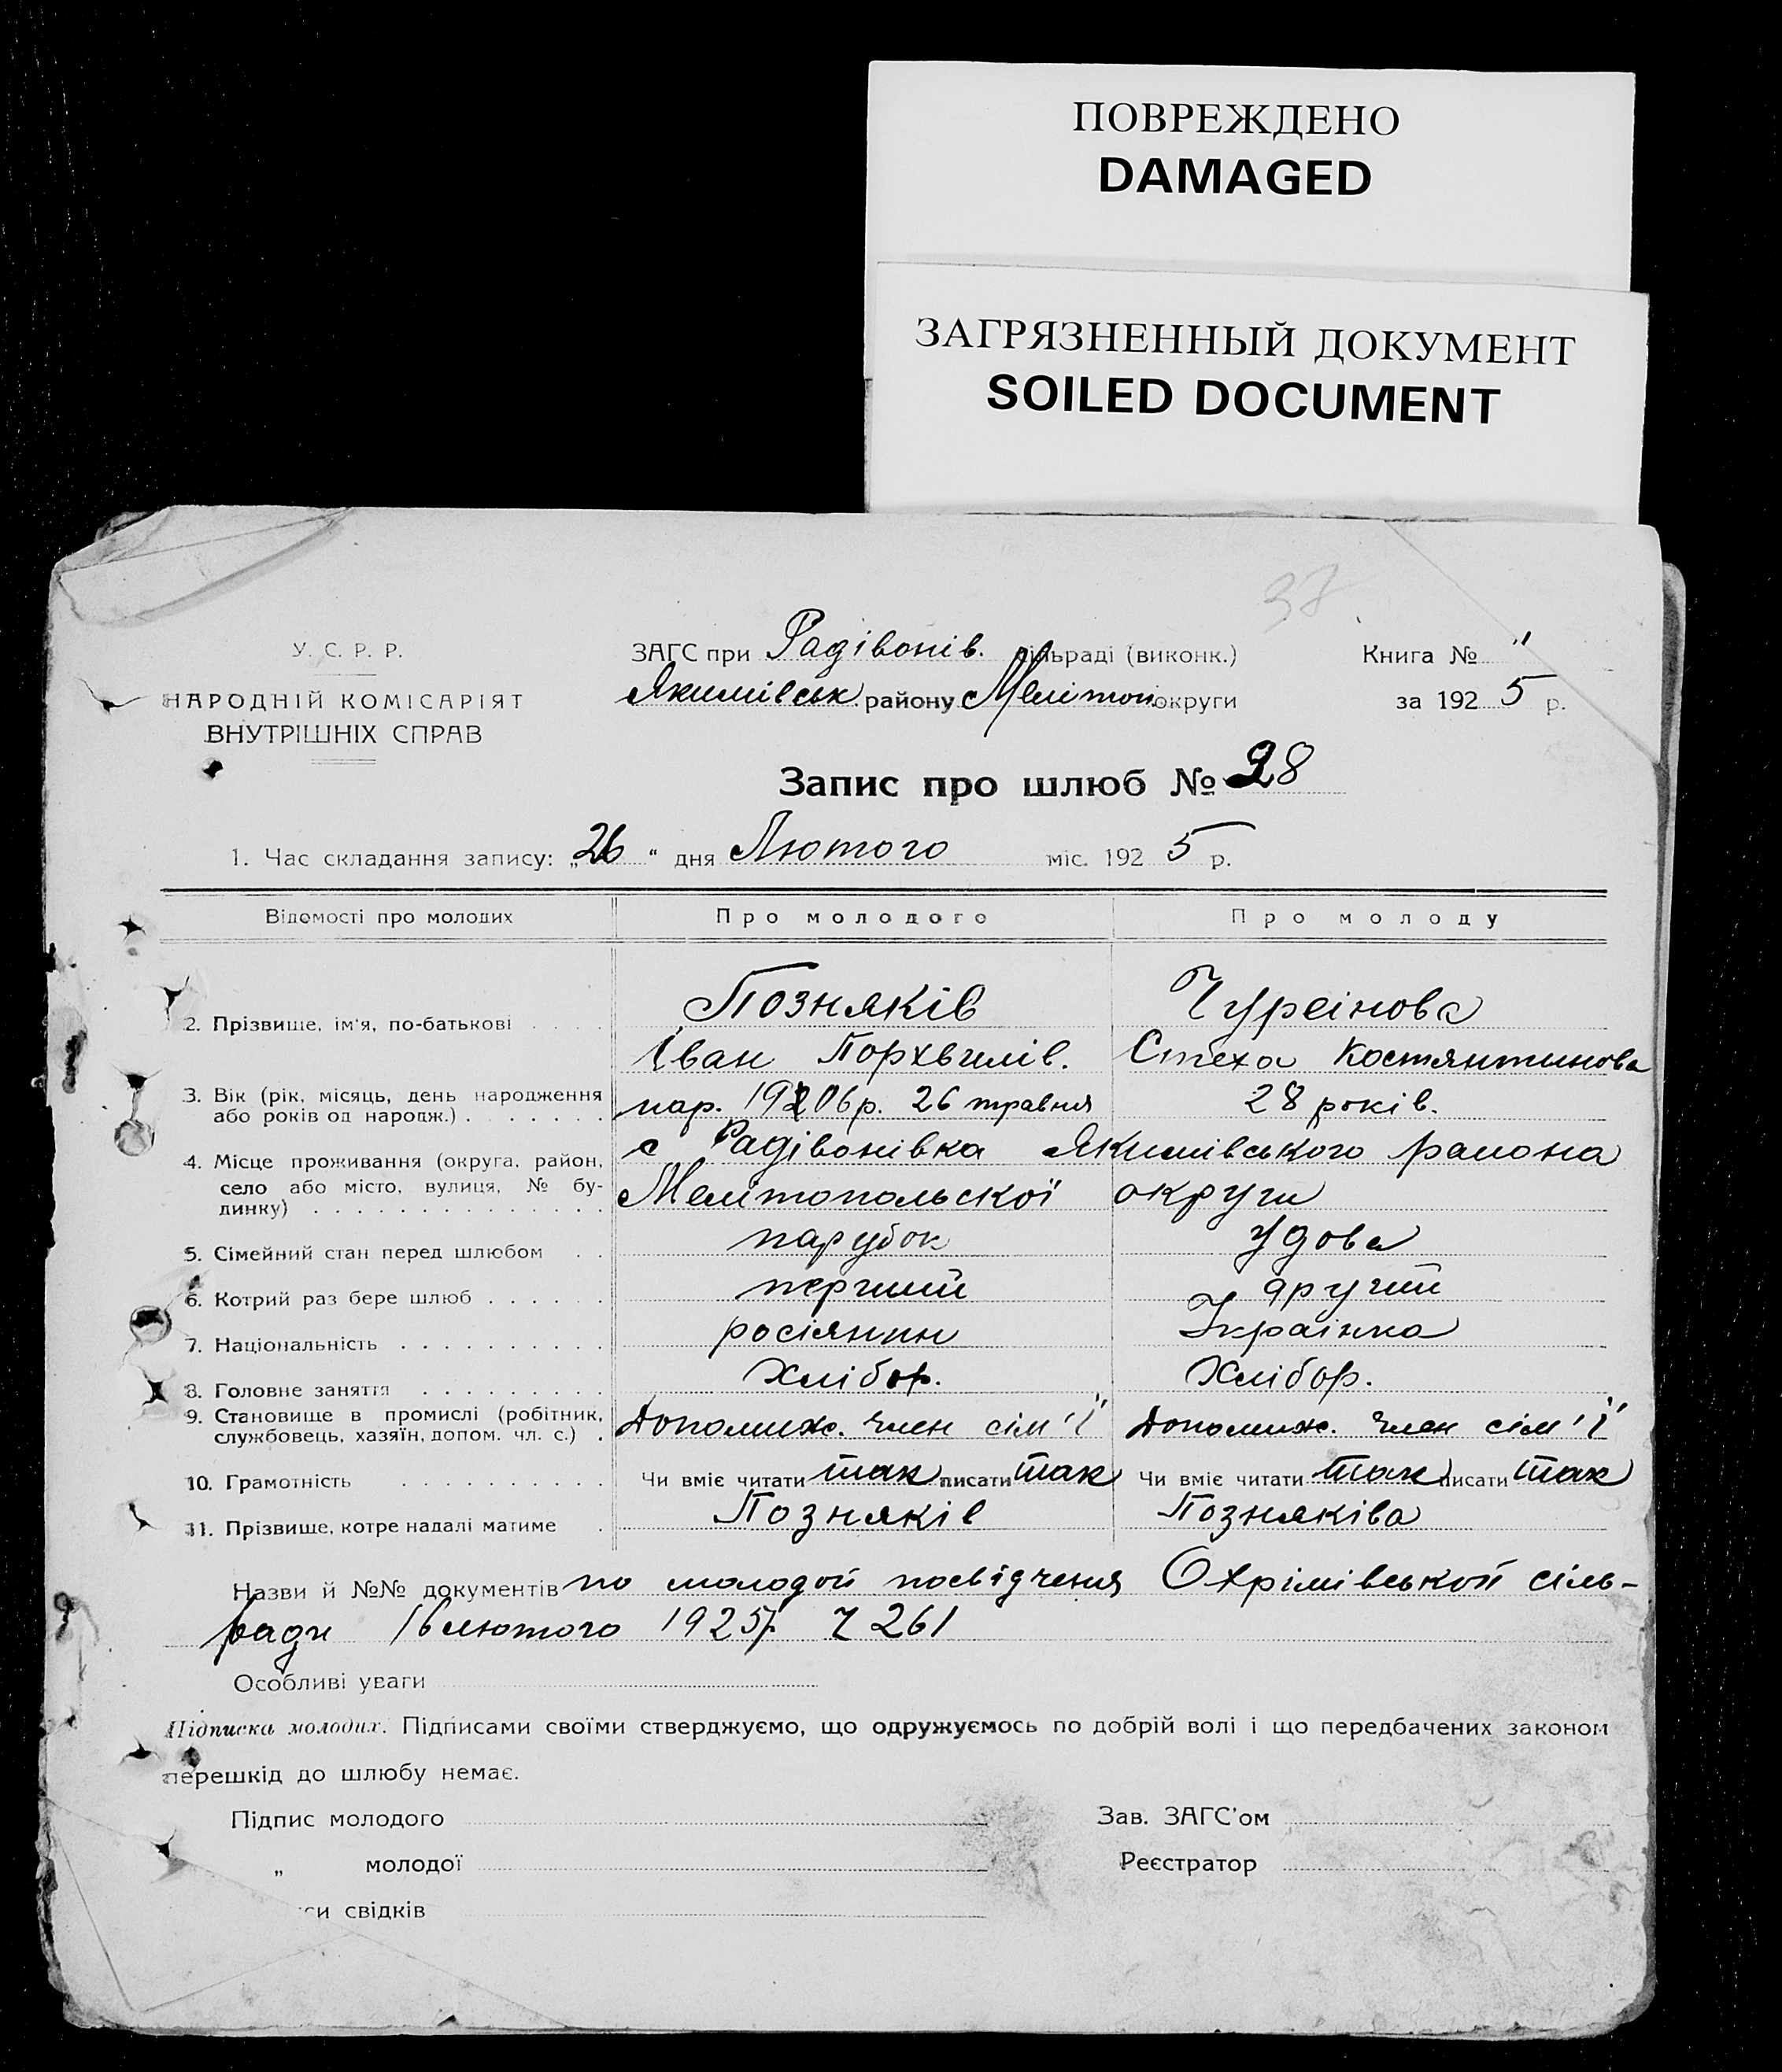 ПОВРЕЖДЕНО
DAMAGED
ЗАГРЯЗНЕННЫЙ ДОКУМЕНТ
SOILED DOCUMENT
38
У. С. Р. Р.
НАРОДНІЙ КОМІСАРІЯТ
ВНУТРІШНІХ СПРАВ
ЗАГС при Радівонів. сільраді (виконк.)
Якимівськ. району Мелітоп. округи
Книга № "
за 1925 р.
Запис про шлюб № 28
1. Час складання запису: „26" дня Лютого міс. 1925 р.
Відомості про молодих Про молодого Про молоду
2. Прізвище, ім'я, по-батькові . . . . Позняків Чуреінова
Іван Порхвилів. Стеха Костянтинова
3. Вік (рік, місяць, день народження або років од народж.) . . . . . . нар. 1906р. 26 травня 28 років.
4. Місце проживання (округа, район, село або місто, вулиця, № будинку) . . . . . . с Радівонівка Якимівського района
Мелітопольскої округи
5. Сімейний стан перед шлюбом . . парубок удова
6. Котрий раз бере шлюб . . . . . перший другий
7. Національність . . . . . . . . . росіянин Украінка
8. Головне заняття . . . . . . . . . Хлібор. Хлібор.
9. Становище в промислі (робітник, службовець, хазяїн, допом. чл. с.) . Допомиж. член сім'ї Допомиж. член сім'ї
10. Грамотність . . . . . . . . . . Чи вміє читати так писати так Чи вміє читати так писати так
11. Прізвище, котре надалі матиме . Позняків Позняківа
Назви й №№ документів по молодой посвідченя Охрімівськой сіль-
ради 16 лютого 1925р Ч 261
Особливі уваги
Підписка молодих. Підписами своїми стверджуємо, що одружуємось по добрій волі і що передбачених законом
перешкід до шлюбу немає.
Підпис молодого Зав. ЗАГС'ом
„ молодої Реєстратор
си свідків